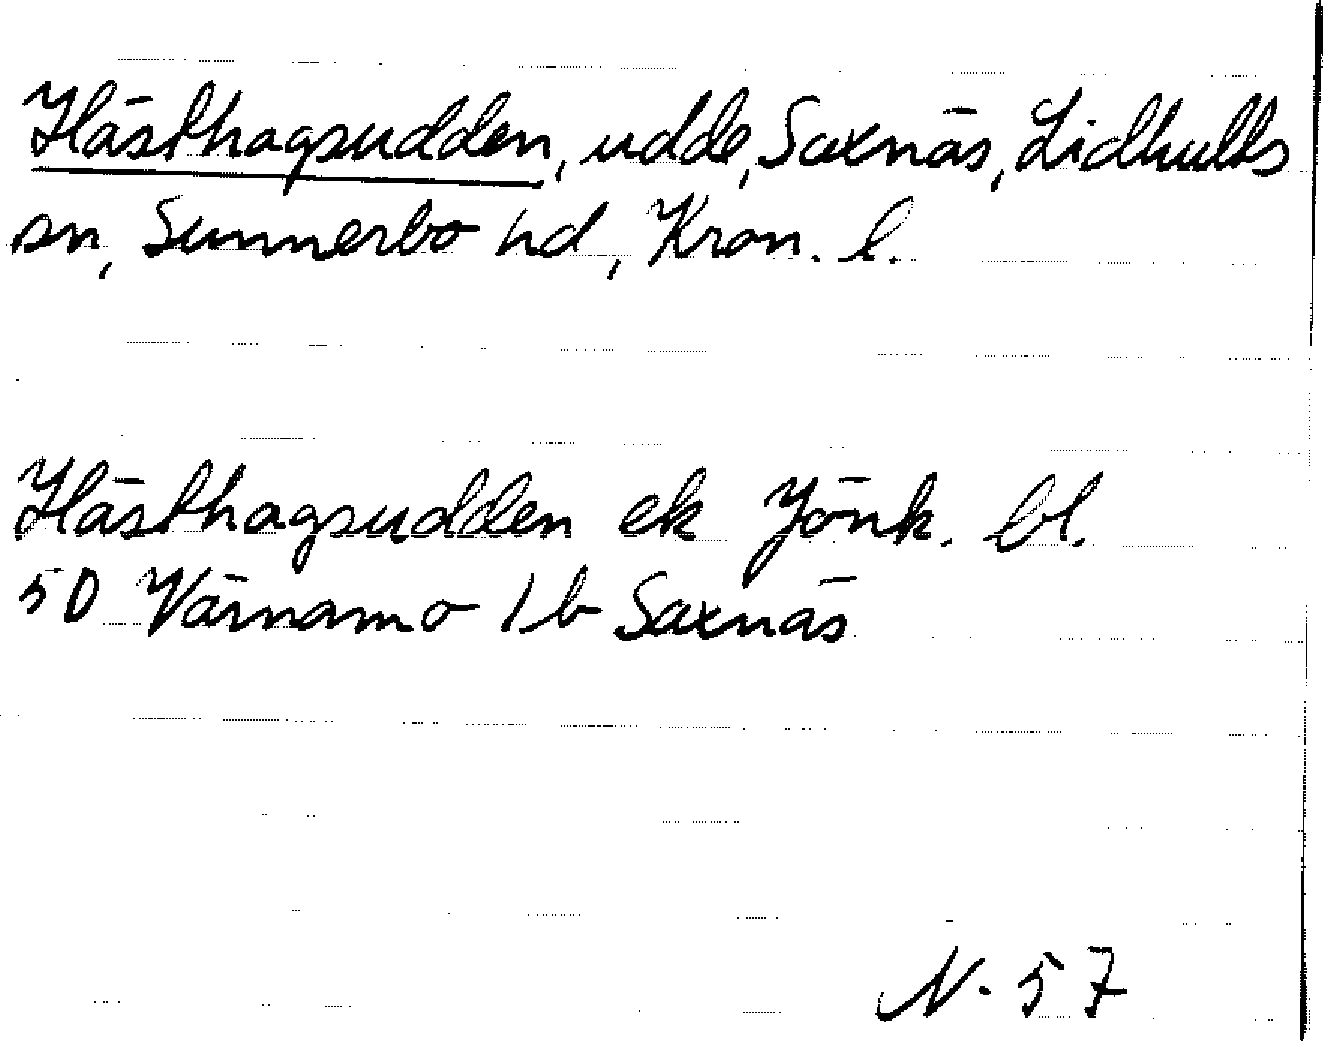 Hästhagsudden, udde, Saxnäs, Lidhults
sn, Sunnerbo hd, Kron. l.
Hästhagsudden ek Jönk. bl.
5D Värnamo 1b Saxnäs
N. 57